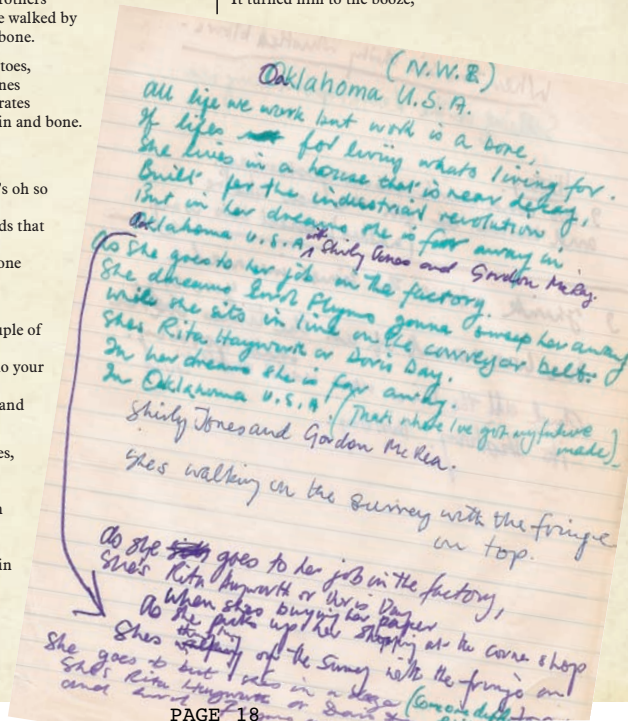 rothers
e walked by
bone.
toes,
nes
rates
in and bone.
's oh so
ds that
one
uple of
o your
and
es,
n
in
It turned him to the booze,
(N.W.2)
Oaklahoma U.S.A.
all life we work but work is a bore,
If lifes for living whats living for.
She lives in a house that is near decay,
Built for the industrial revolution
But in her dreams she is far away in
Oaklahoma U.S.A. with Shirly Jones and Gordon McRay.
As she goes to her job in the factory.
She dreams Errol Flynns gonna sweep her away
while she sits in line on the conveyor belt.
She's Rita Hayworth or Doris Day.
In her dreams she is far away.
In Oklahoma U.S.A. (Thats where I've got my future made)
Shirly Jones and Gordon McRea.
She's walking on the surrey with the fringe
on top.
As she goes to her job in the factory,
She's Rita Hayworth or Doris Day
When she's buying her paper
As she picks up her shopping at the corner shop
She's thinking of the Surrey with the fringe on
She goes to but in a
She's Rita Hayworth or Doris
and Errol Flynn
PAGE 18